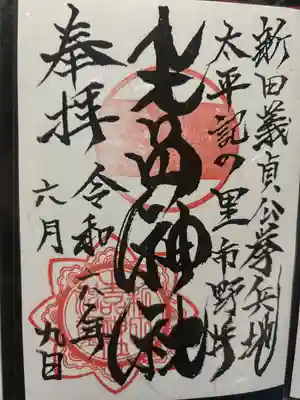 新田義貞公挙兵地
太平記の里市野井
生品神社
奉拝
令和 年
六月
九日